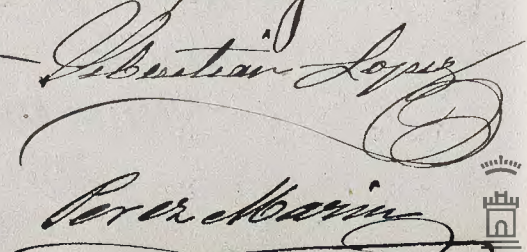 Sebastian Lopez
Perez Marin